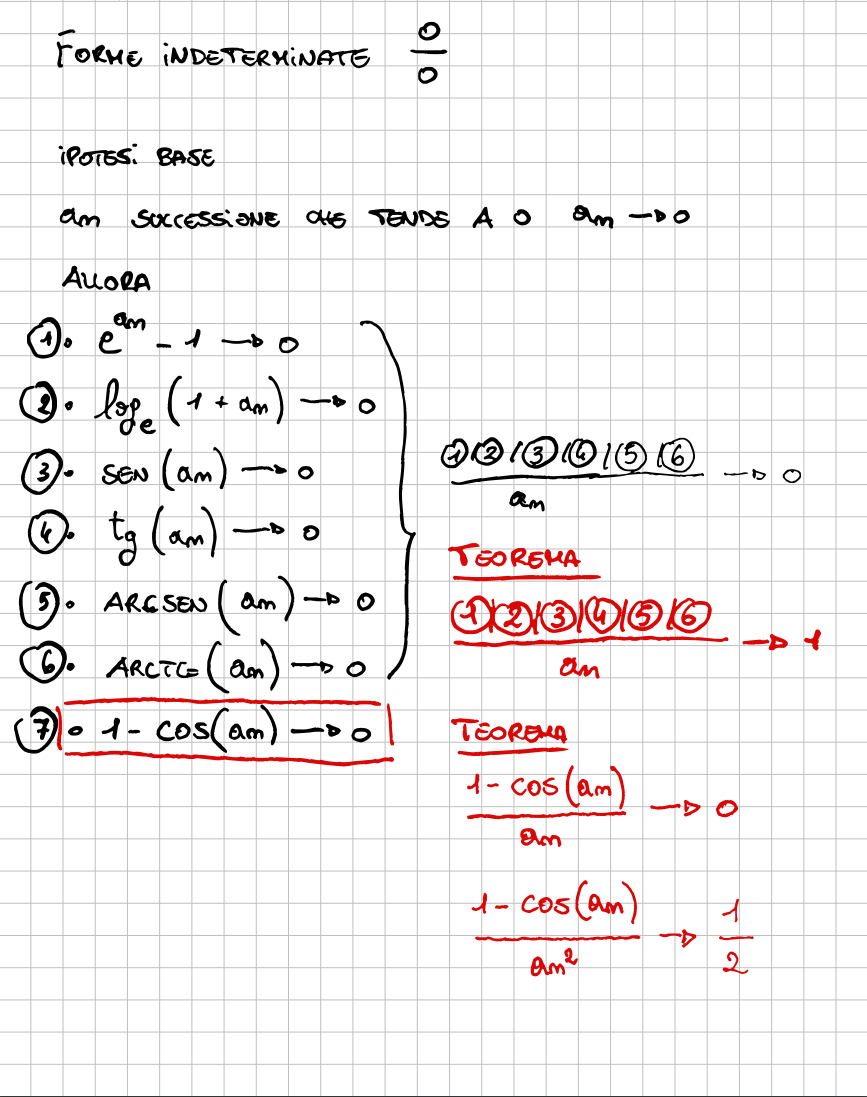 FORME INDETERMINATE 0/0
IPOTESI BASE
an SUCCESSIONE CHE TENDE A 0 an → 0
ALLORA
①. e^an - 1 → 0
②. log_e (1 + an) → 0
③. SEN (an) → 0
④. tg (an) → 0
⑤. ARCSEN (an) → 0
⑥. ARCTG (an) → 0
⑦. 1 - COS(an) → 0
①/②/③/④/⑤/⑥ / an → 0
TEOREMA
①/②/③/④/⑤/⑥ / an → 1
TEOREMA
1 - COS(an) / an → 0
1 - COS(an) / an² → 1/2